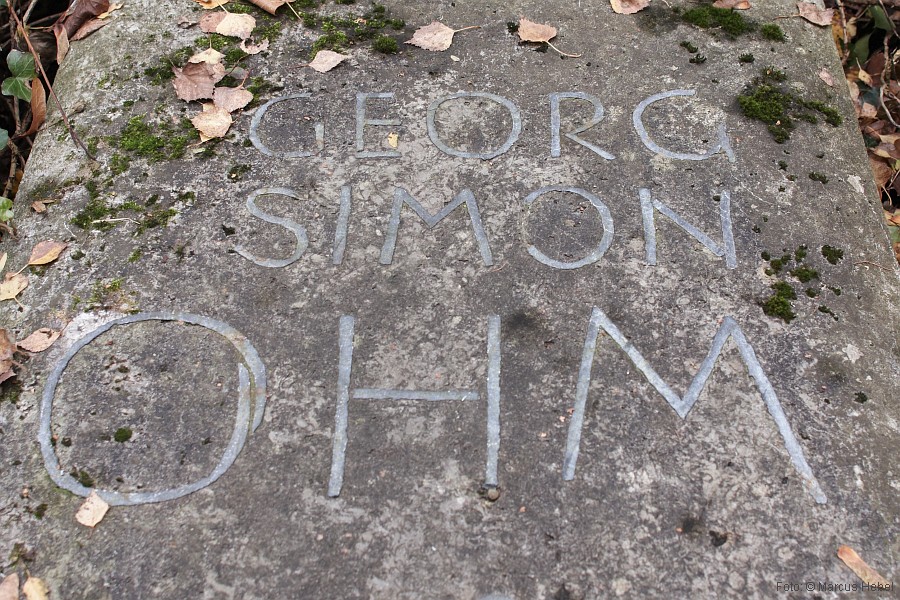 GEORG
SIMON
OHM
Foto: © Marcus Hebel